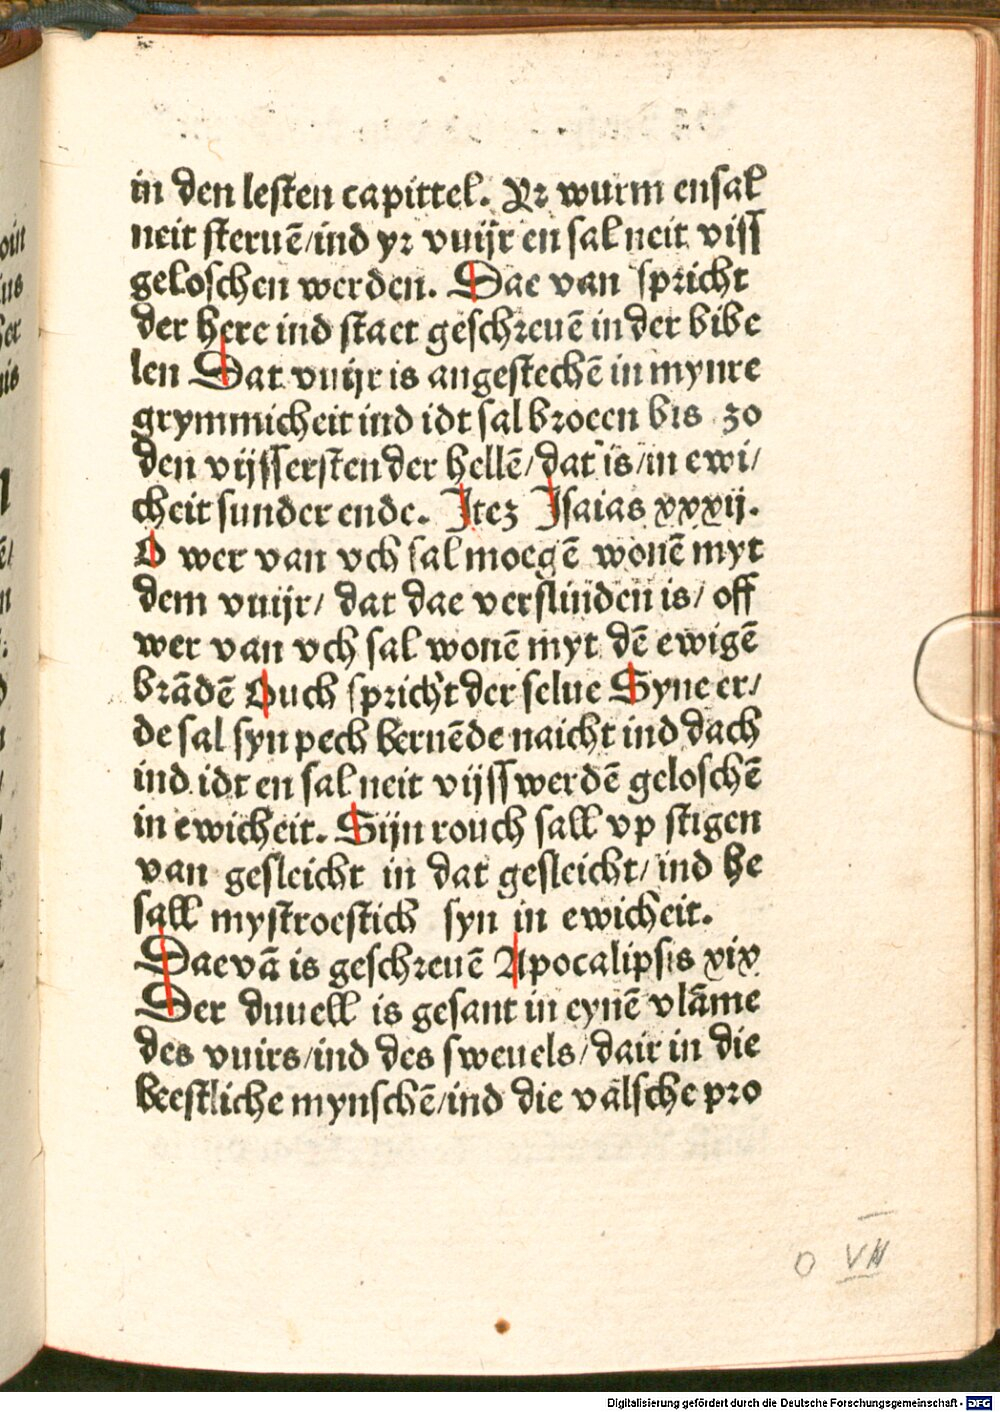 in den lesten capittel. Yr wurm ensal
neit steruē/ind yr vuijr en sal neit viss
geloschen werden. Dae van spricht
der here ind staet geschreuē in der bibe
len Dat vuijr is angestechē in mynre
grymmicheit ind idt sal broeen bis zo
den vijssersten der hellē/dat is/in ewi/
cheit sunder ende. Itez Isaias xxxij.
O wer van vch sal moegē wonē myt
dem vuijr/ dat dae verslindēn is/ off
wer van vch sal wonē myt dē ewigē
brādē Ouch spricht der selue Syne er/
de sal syn pech bernēde naicht ind dach
ind idt en sal neit vijss werdē geloschē
in ewicheit. Sijn rouch sall vp stigen
van gesleicht in dat gesleicht/ ind he
sall mystroestich syn in ewicheit.
Daevā is geschreuē Apocalipsis xix
Der duuell is gesant in eynē vlāme
des vuirs/ind des sweuels/dair in die
beestliche mynschē/ind die valsche pro
O VII
Digitalisierung gefördert durch die Deutsche Forschungsgemeinschaft - DFG